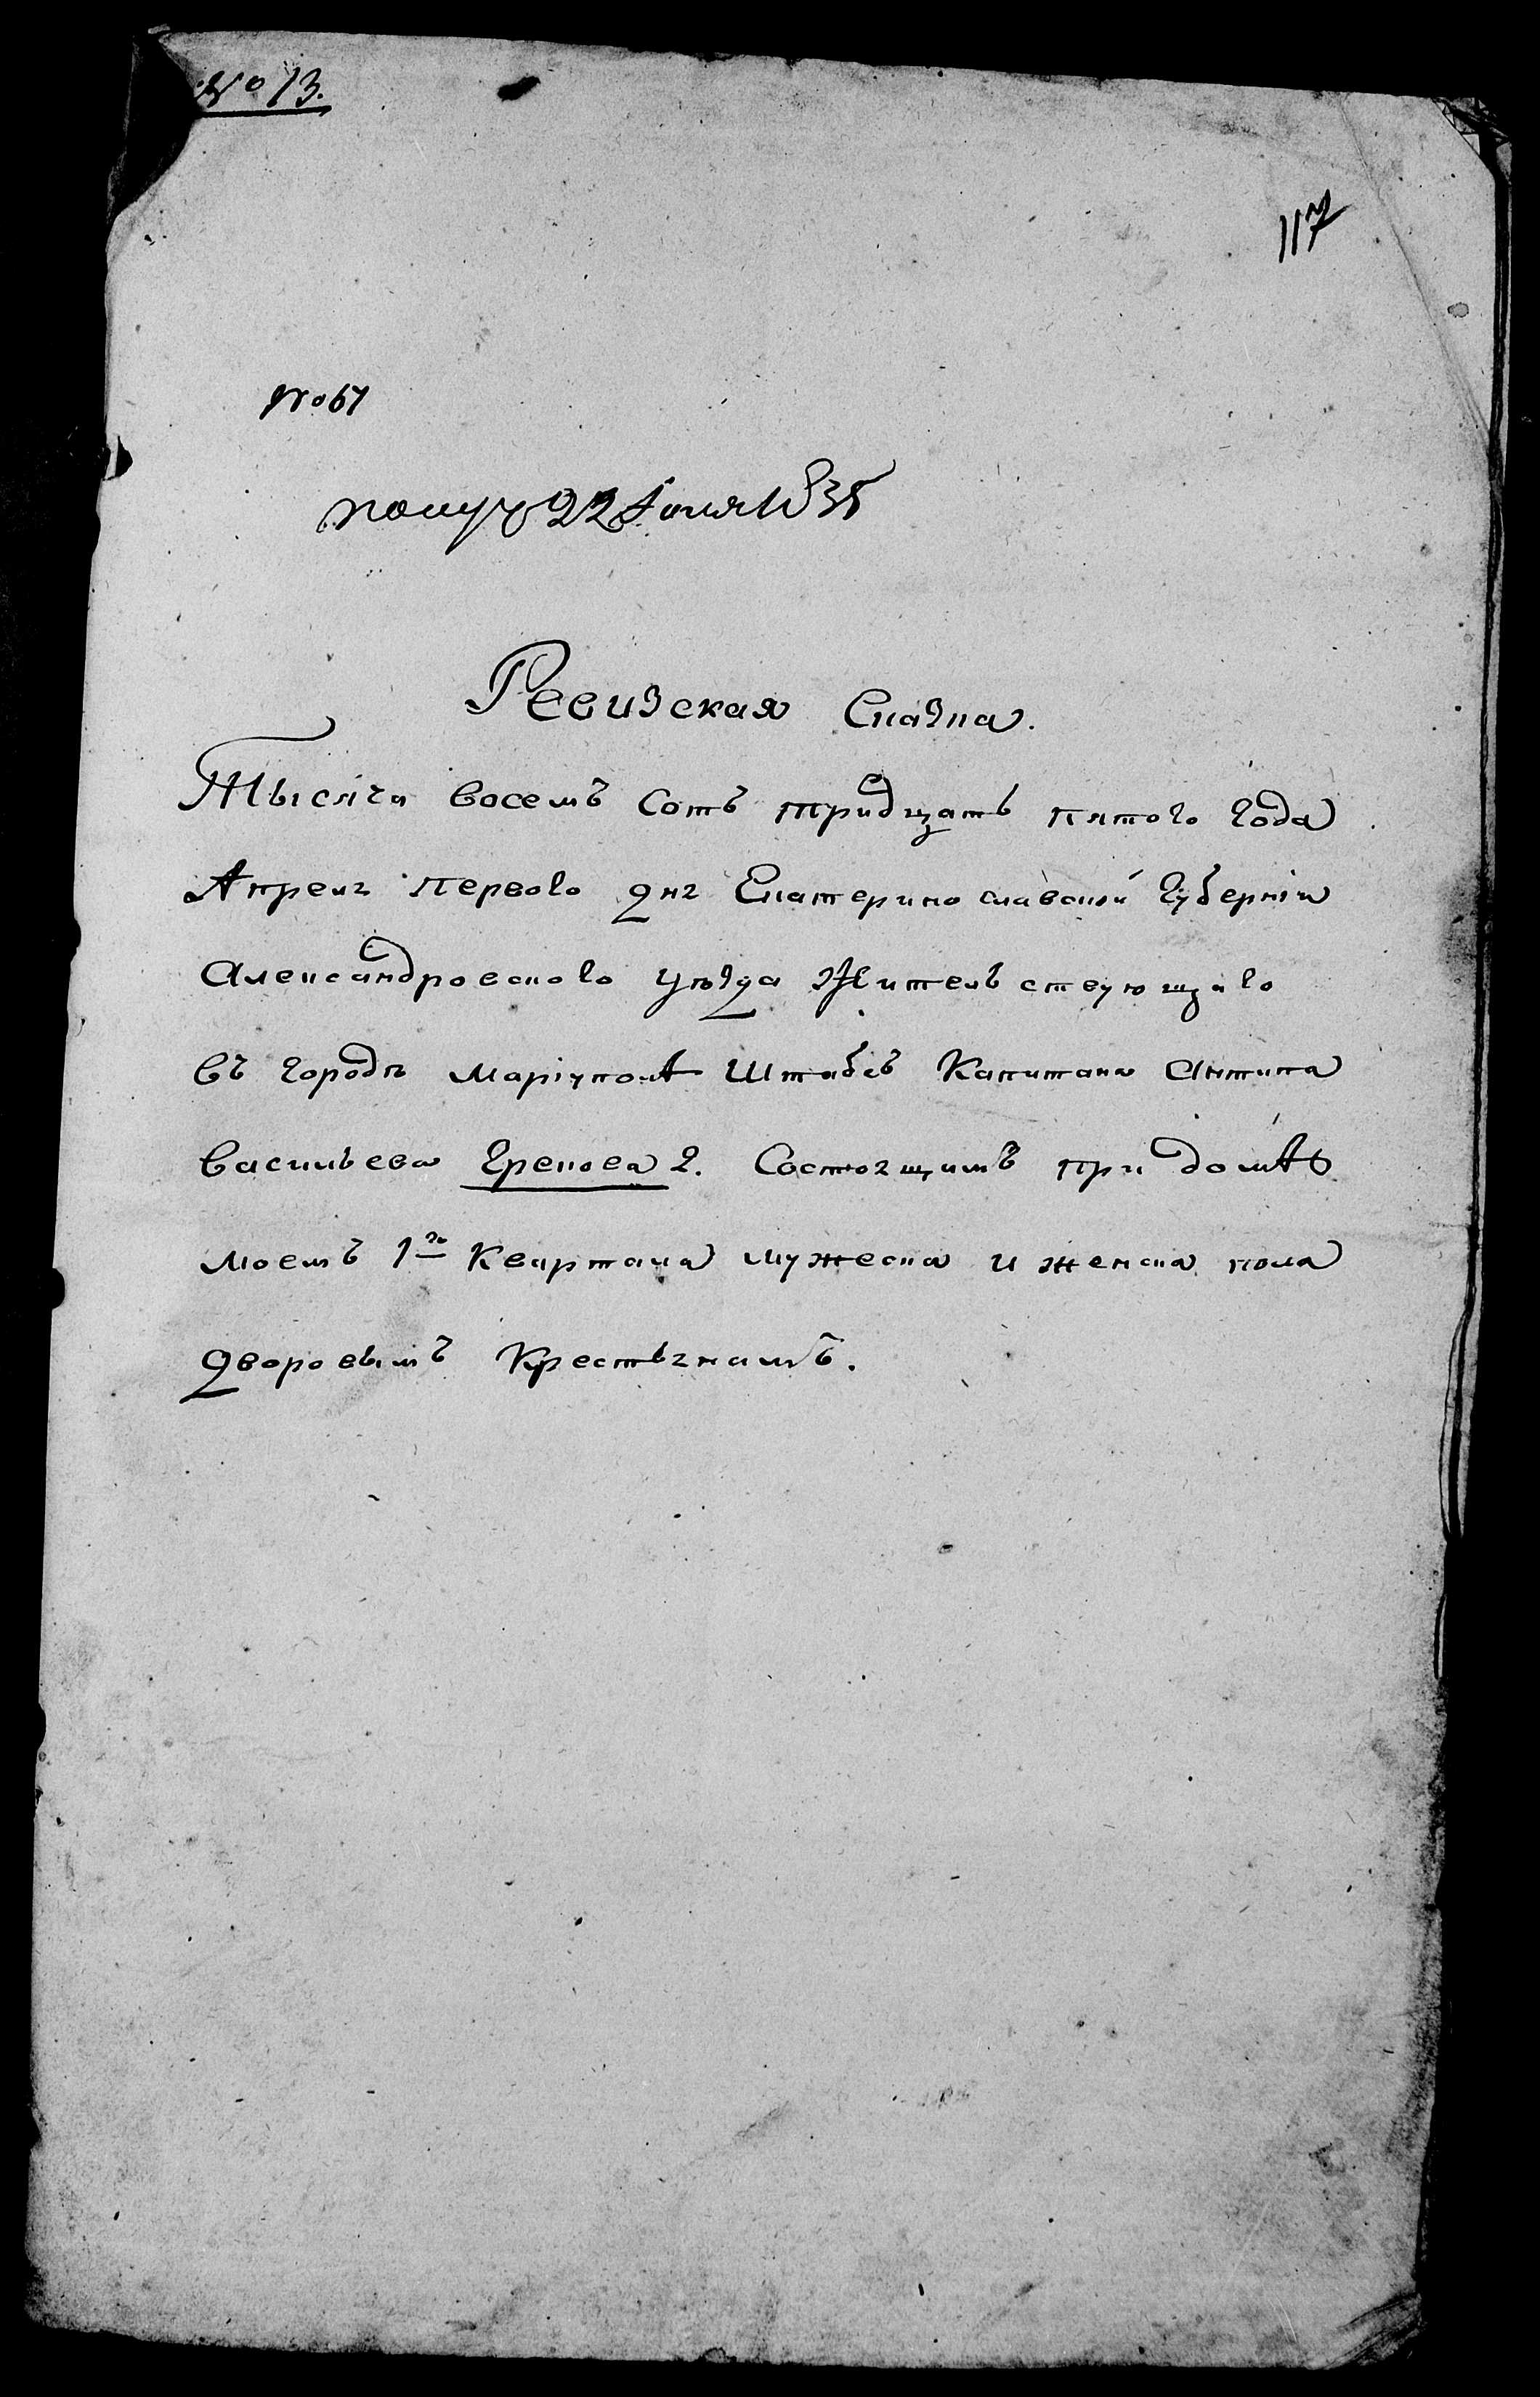 № 13.
117
№ 67
получ 22 Іюня 1835
Ревизская Сказка.
Тысяча восемъ Сотъ тридцать пятого года
Апреля первого дня Екатеринославской Губерніи
Александровского уѣзда Жительствующаго
въ городѣ Маріуполѣ Штабсъ Капитана Антипа
Васильева Грекова 2. Состоящимъ при домѣ
моемъ 1го Квартала мужеска и женска пола
дворовымъ Крестьянамъ.